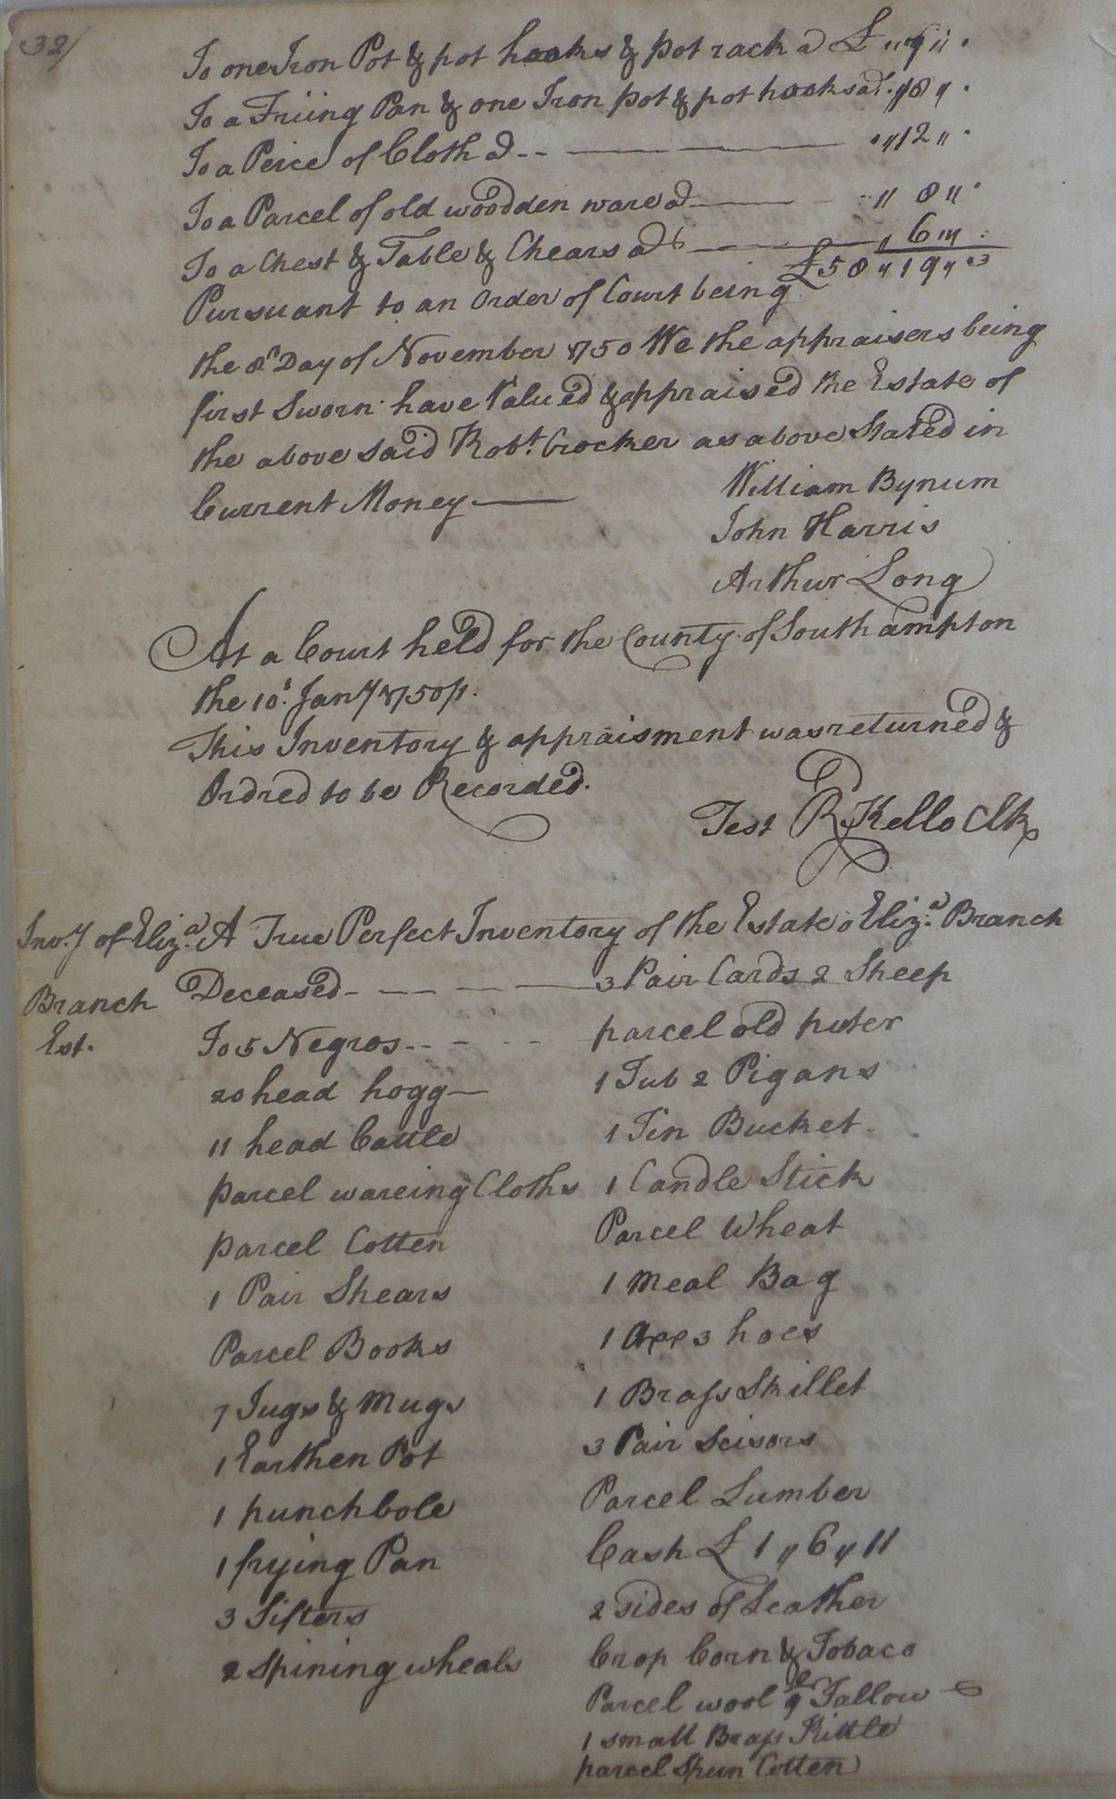 32/
To one Iron Pot & pot hooks & pot rack a £ " 9 "
To a Friing Pan & one Iron pot & pot hooks at " 8 "
To a Peice of Cloth a " 12 "
To a Parcel of old woodden ware a " 8 "
To a Chest & Table & Chears a " 6 "
£58 " 19 " 3
Pursuant to an Order of Court being
the 8th Day of November 1750 We the appraisers being
first Sworn have Valued & appraised the Estate of
the above said Robt. Crocker as above Stated in
Current Money
William Bynum
John Harris
Arthur Long
At a Court held for the County of Southampton
the 10th. Jany 1750/1.
This Inventory & appraisment was returned &
Ordred to be Recorded.
Test R Kello Clk
Inv.y of Eliz.a
Branch
Est.
A True Perfect Inventory of the Estate o Eliz.a Branch
Deceased
To 5 Negros
20 head hogg
11 head Cattle
parcel wareing Cloths
parcel Cotten
1 Pair Shears
Parcel Books
7 Jugs & Mugs
1 Earthen Pot
1 punch bole
1 frying Pan
3 Sifters
2 Spining wheals
3 Pair Cards 2 Sheep
parcel old puter
1 Tub 2 Pigans
1 Tin Bucket
1 Candle Stick
Parcel Wheat
1 meal Bag
1 axe 3 hoes
1 Brass Skillet
3 Pair Scisors
Parcel Lumber
Cash £ 1 " 6 " 11
2 sides of Leather
Crop Corn & Tobaco
Parcel wool & Tallow
1 small Brass Kittle
parcel Spun Cotten